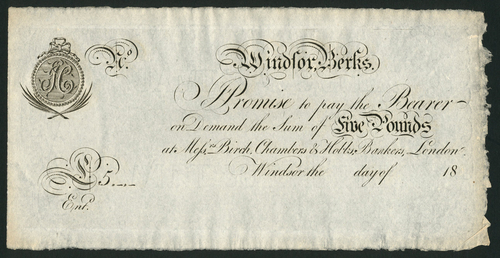 No.
Windsor, Berks.
I Promise to pay the Bearer
on Demand the Sum of Five Pounds
at Messrs. Birch, Chambers & Hobbs, Bankers, London.
Windsor the day of 18
£5.—.—
Entd.